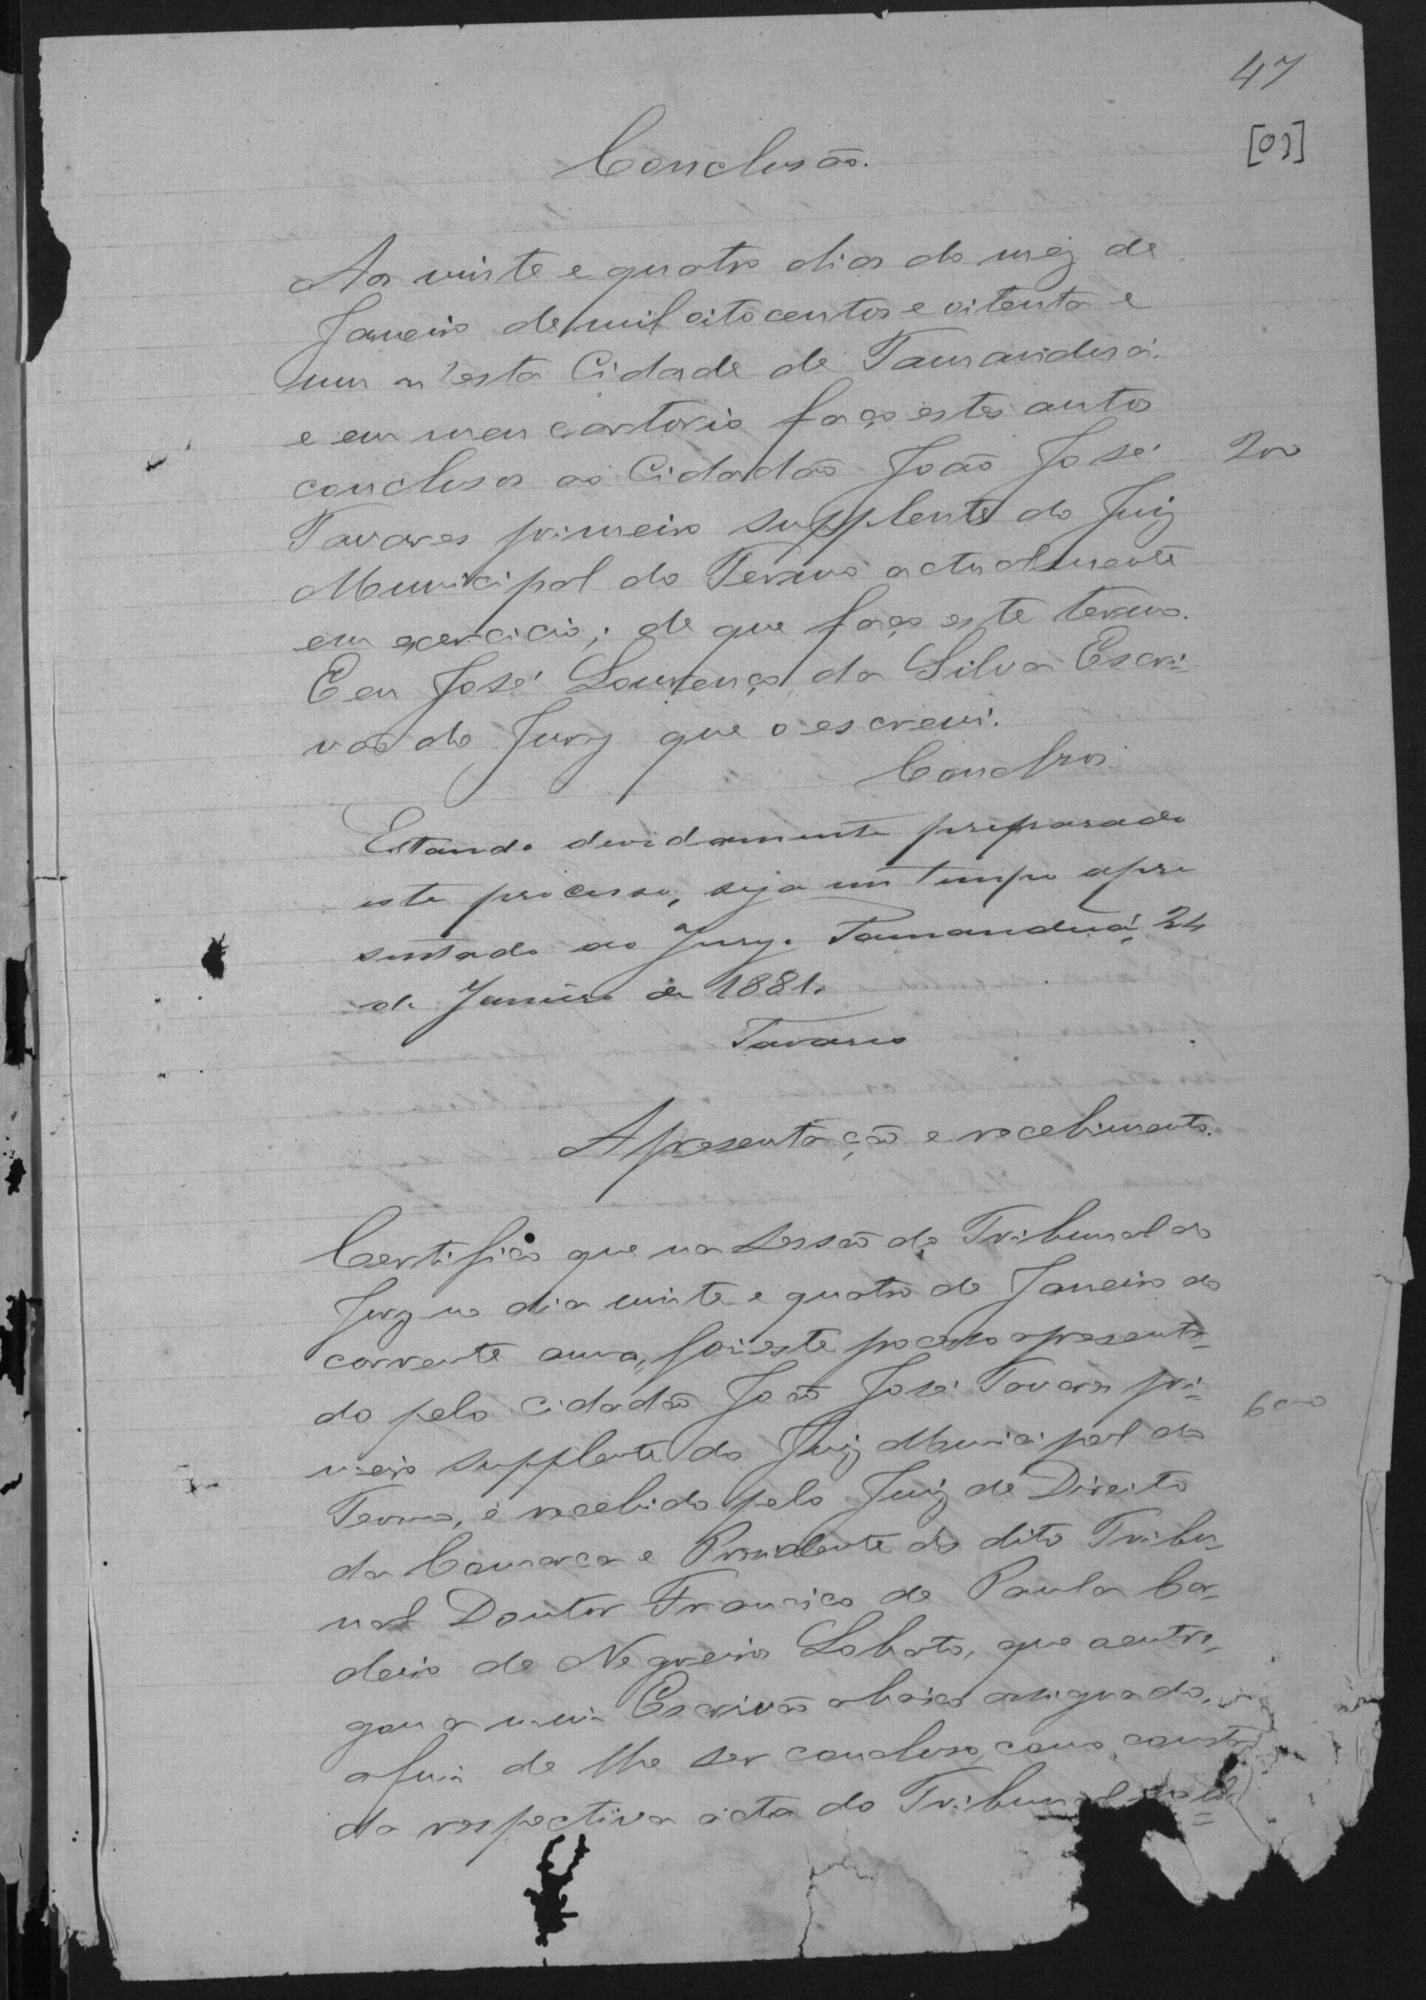 47
[01]
Conclusão.
Aos vinte e quatro dias do mez de
Janeiro de mil oitocentos e oitenta e
um n'esta Cidade de Tamanduá
e em meu cartorio faço estes autos
conclusos ao Cidadão João José
200
Tavares primeiro supplente do Juiz
Municipal do Termo actualmente
em exercicio; de que faço este termo.
E eu José Lourenço da Silva Escri=
vão do Jury que o escrevi.
Conclsos
Estando devidamente preparado
este processo, seja em tempo apre
sentado ao Jury. Tamanduá, 24
de Janeiro de 1881.
Tavares
Apresentação e recebimento.
Certifico que na sessão do Tribunal do
Jury no dia vinte e quatro de Janeiro do
corrente anno, foi este processo apresenta=
do pelo cidadão João José Tavares pri=
600
meiro supplente do Juiz Municipal do
Termo, e recebido pelo Juiz de Direito
da Comarca e Presidente do dito Tribu=
nal Doutor Francisco de Paula Cor=
deiro de Negreiros Lobato, que a entre=
gou a mim Escrivão abaixo assignado,
afim de lhe ser concluso, como consta
da respectiva acta do Tribunal